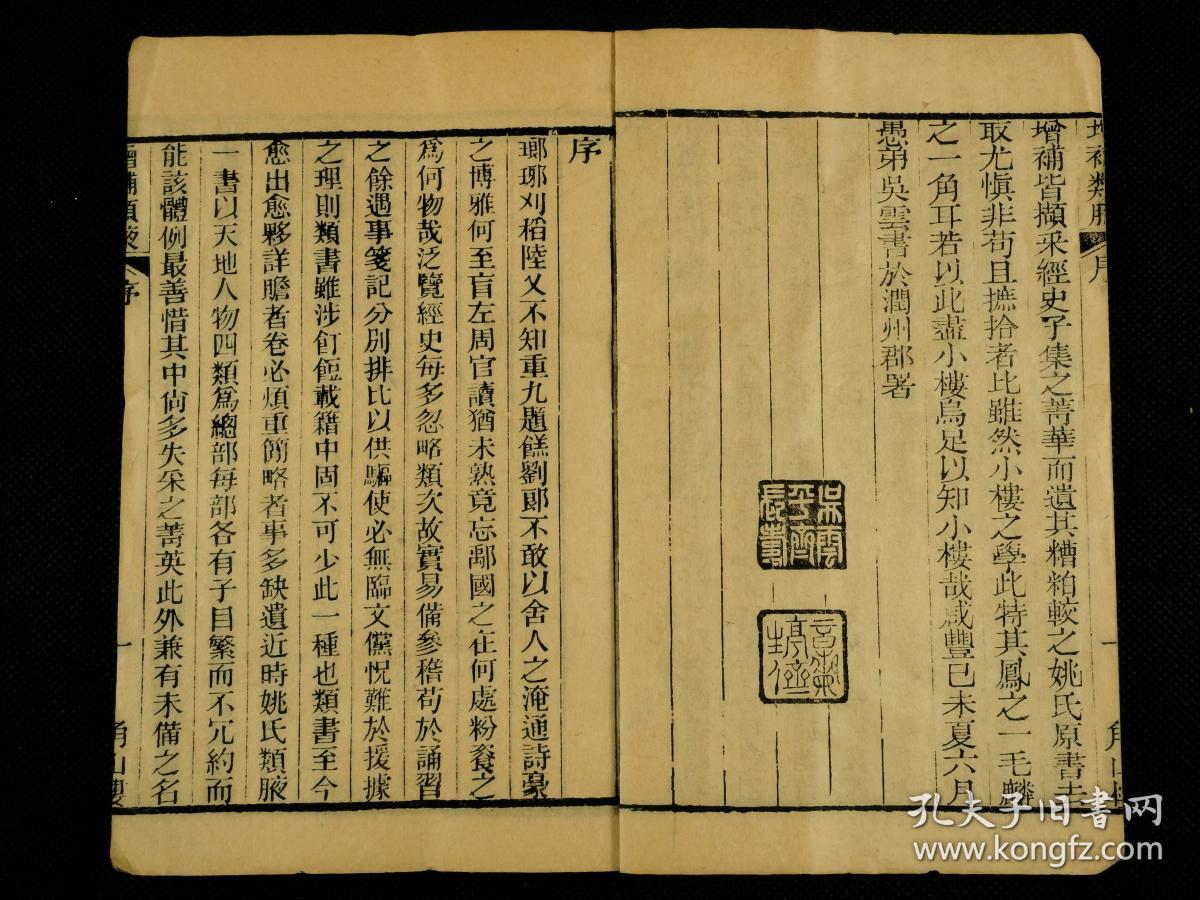 增補類腋
序
增補皆擷采經史子集之菁華而遺其糟粕較之姚氏原書去
取尤慎非苟且摭拾者比雖然小樓之學此特其鳳之一毛麟
之一角耳若以此盡小樓烏足以知小樓哉咸豐己未夏六月
愚弟吳雲書於潤州郡署
吳雲
平齋
長壽
序
瑯琊刈稻陸乂不知重九題餻劉郎不敢以舍人之淹通詩豪
之博雅何至盲左周官讀猶未熟竟忘鄅國之在何處粉餈之
爲何物哉泛覽經史每多忽略類次故實易備參稽苟於誦習
之餘遇事箋記分別排比以供驅使必無臨文儻怳難於援據
之理則類書雖涉飣餖載籍中固不可少此一種也類書至今
愈出愈夥詳贍者卷必煩重簡略者事多缺遺近時姚氏類腋
一書以天地人物四類爲總部每部各有子目繁而不冗約而
能該體例最善惜其中尙多失采之菁英此外兼有未備之名
增補類腋
序
一
角山樓
孔夫子旧书网
www.kongfz.com